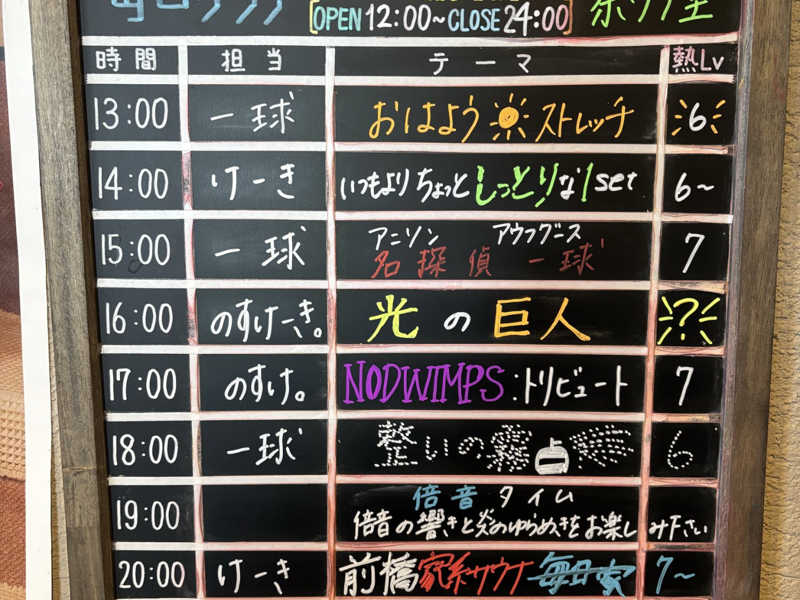 OPEN 12:00~CLOSE 24:00
時間 担当 テーマ 熱Lv
13:00 一球 おはようストレッチ 6
14:00 けーき いつもよりちょっとしっとりなset 6~
15:00 一球 アニソン アウフグース 名探偵一球 7
16:00 のすけーき。 光の巨人 ?
17:00 のすけ。 NODWIMPS:トリビュート 7
18:00 一球 整いの霧 6
19:00 倍音タイム
倍音の響きと炎のゆらめきをお楽しみ下さい
20:00 けーき 前橋家系サウナ 7~